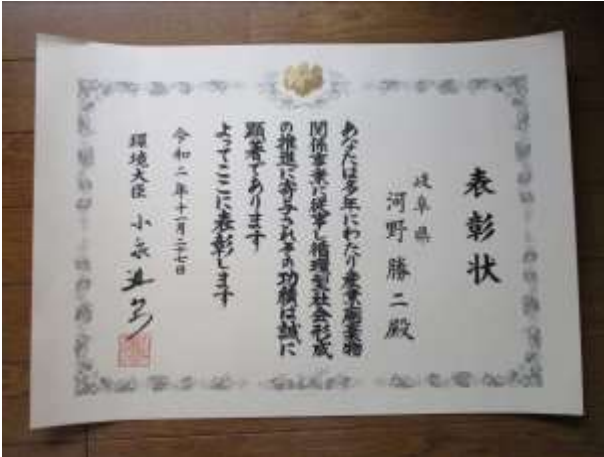 表彰状
岐阜県
河野勝二殿
あなたは多年にわたり産業廃棄物
関係事業に従事し循環型社会形成
の推進に寄与されその功績は誠に
顕著であります
よってここに表彰します
令和二年十一月二十七日
環境大臣 小泉進次郎